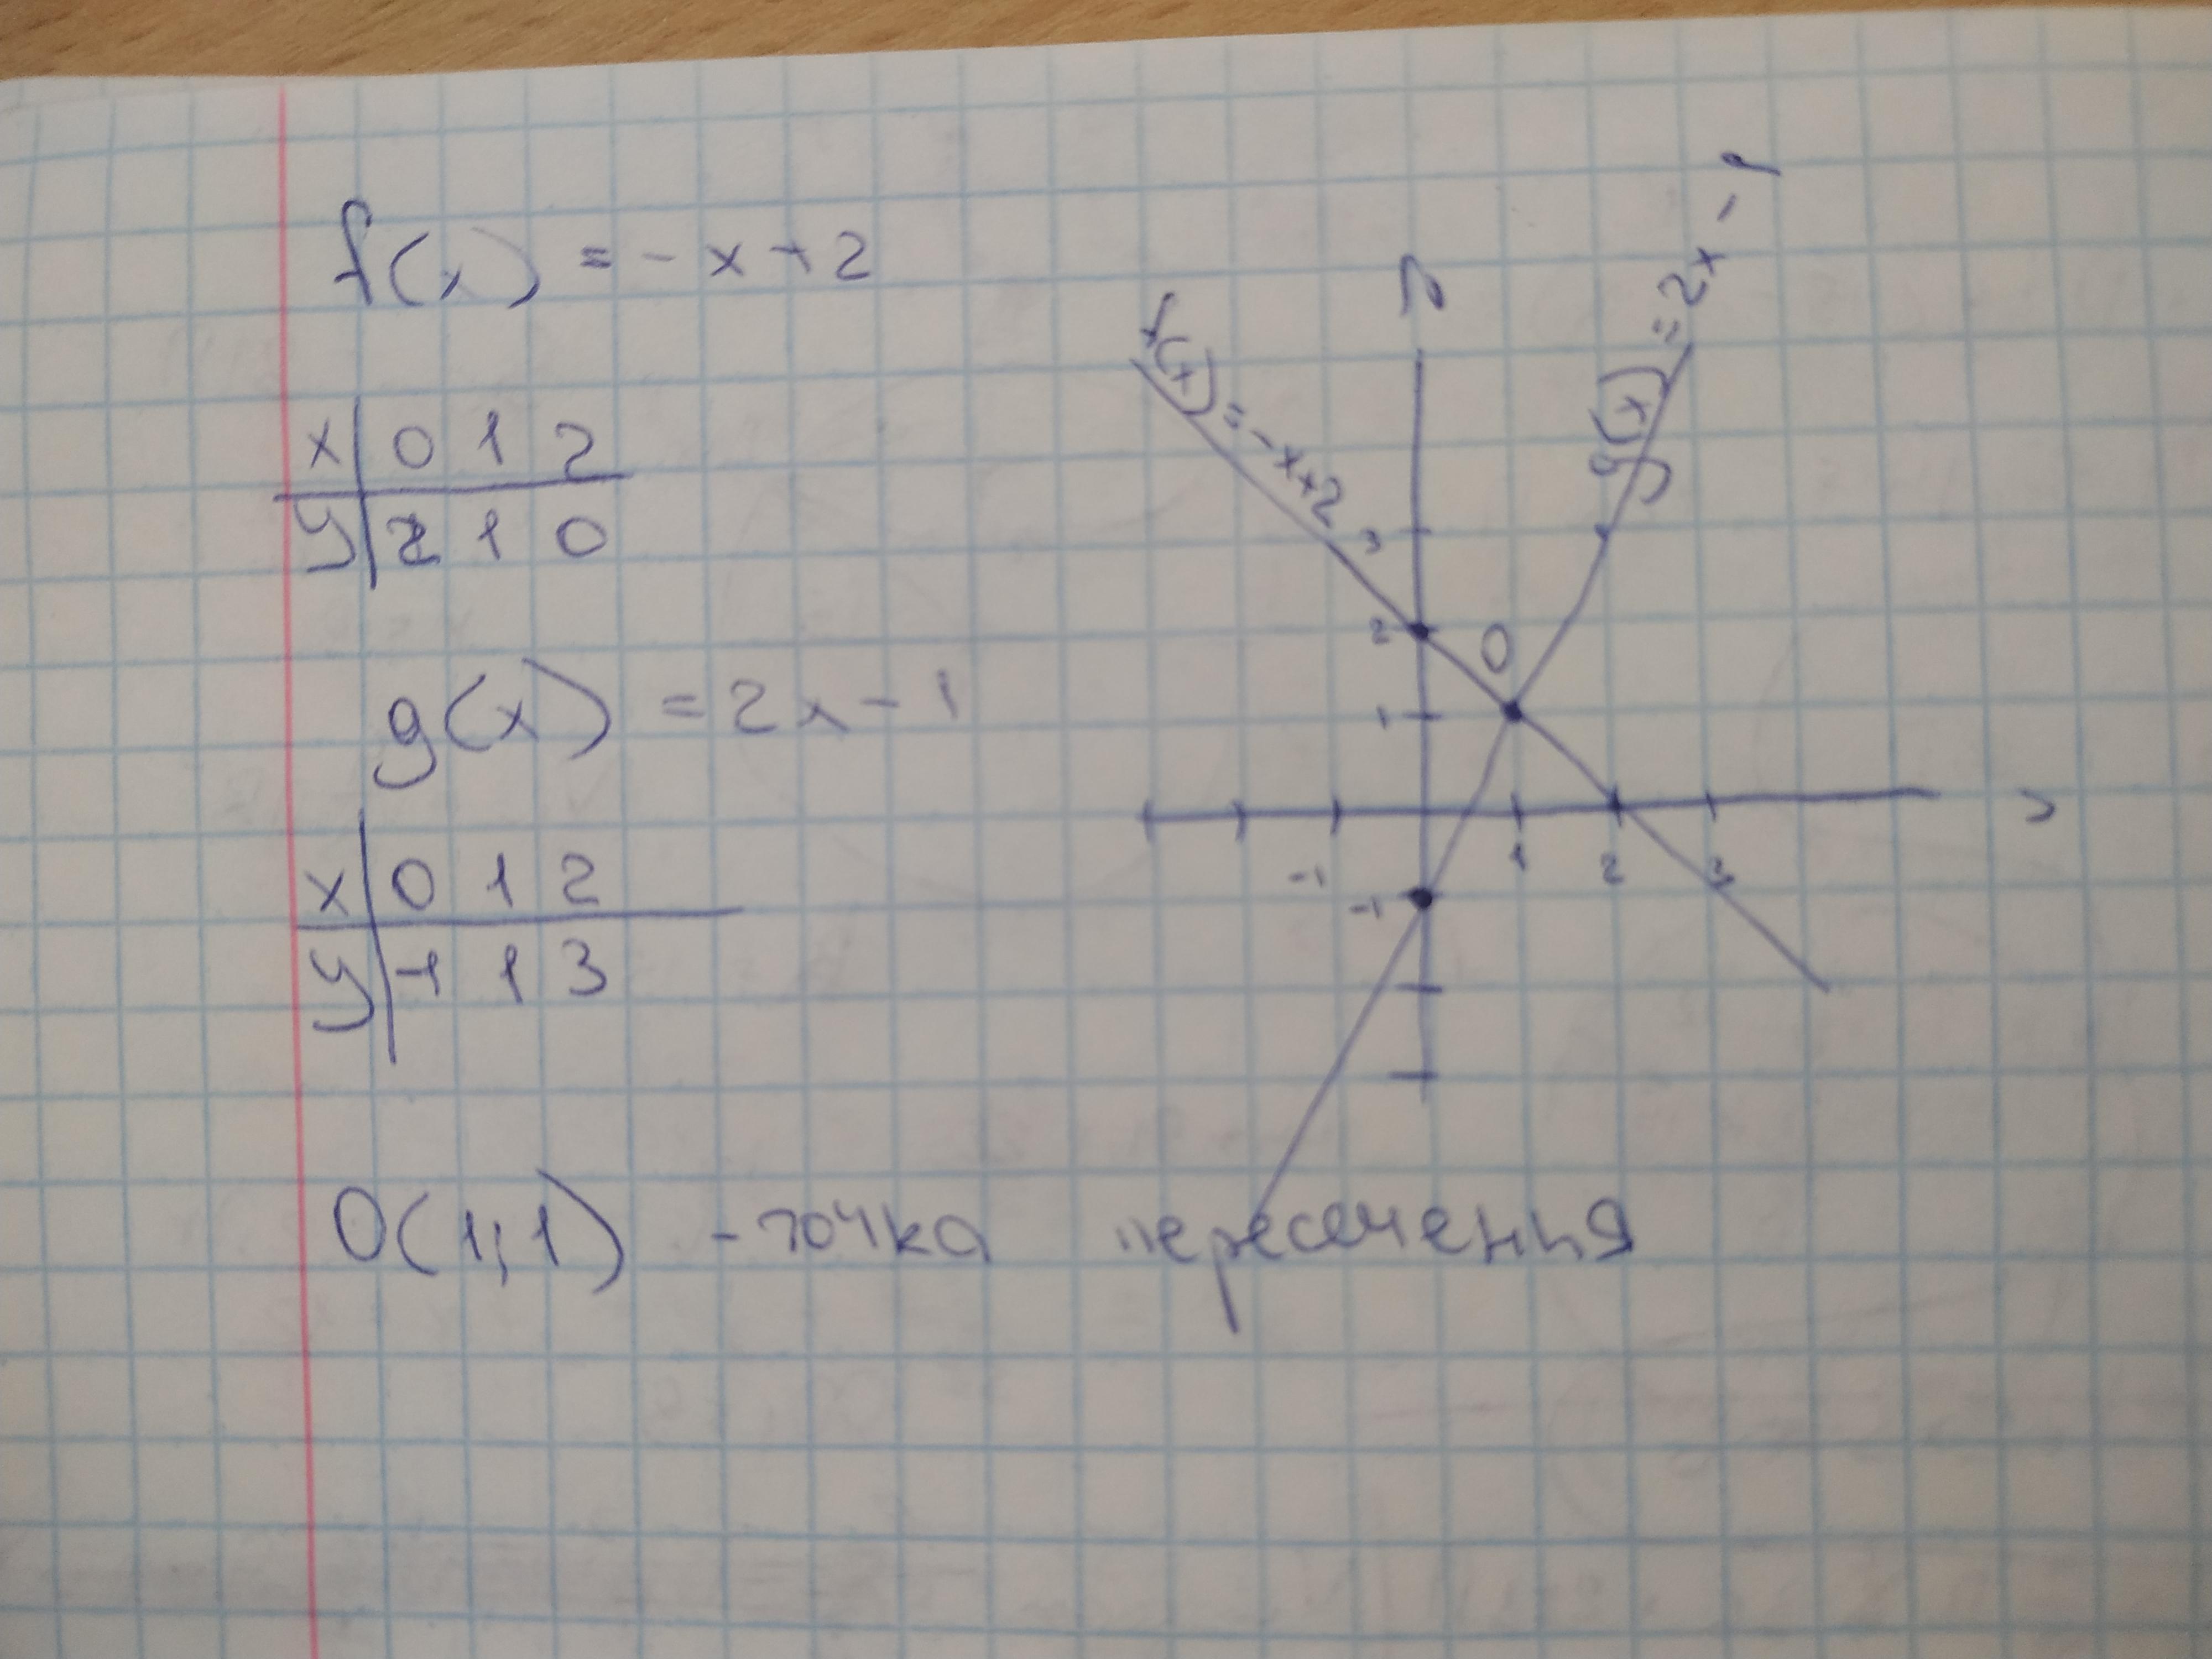 f(x) = -x+2
x 0 1 2
y 2 1 0
g(x) = 2x-1
x 0 1 2
y -1 1 3
O(1;1) - точка пересечения
f(x) = -x+2
g(x) = 2x-1
3
2
O
1
-1
1
2
3
-1